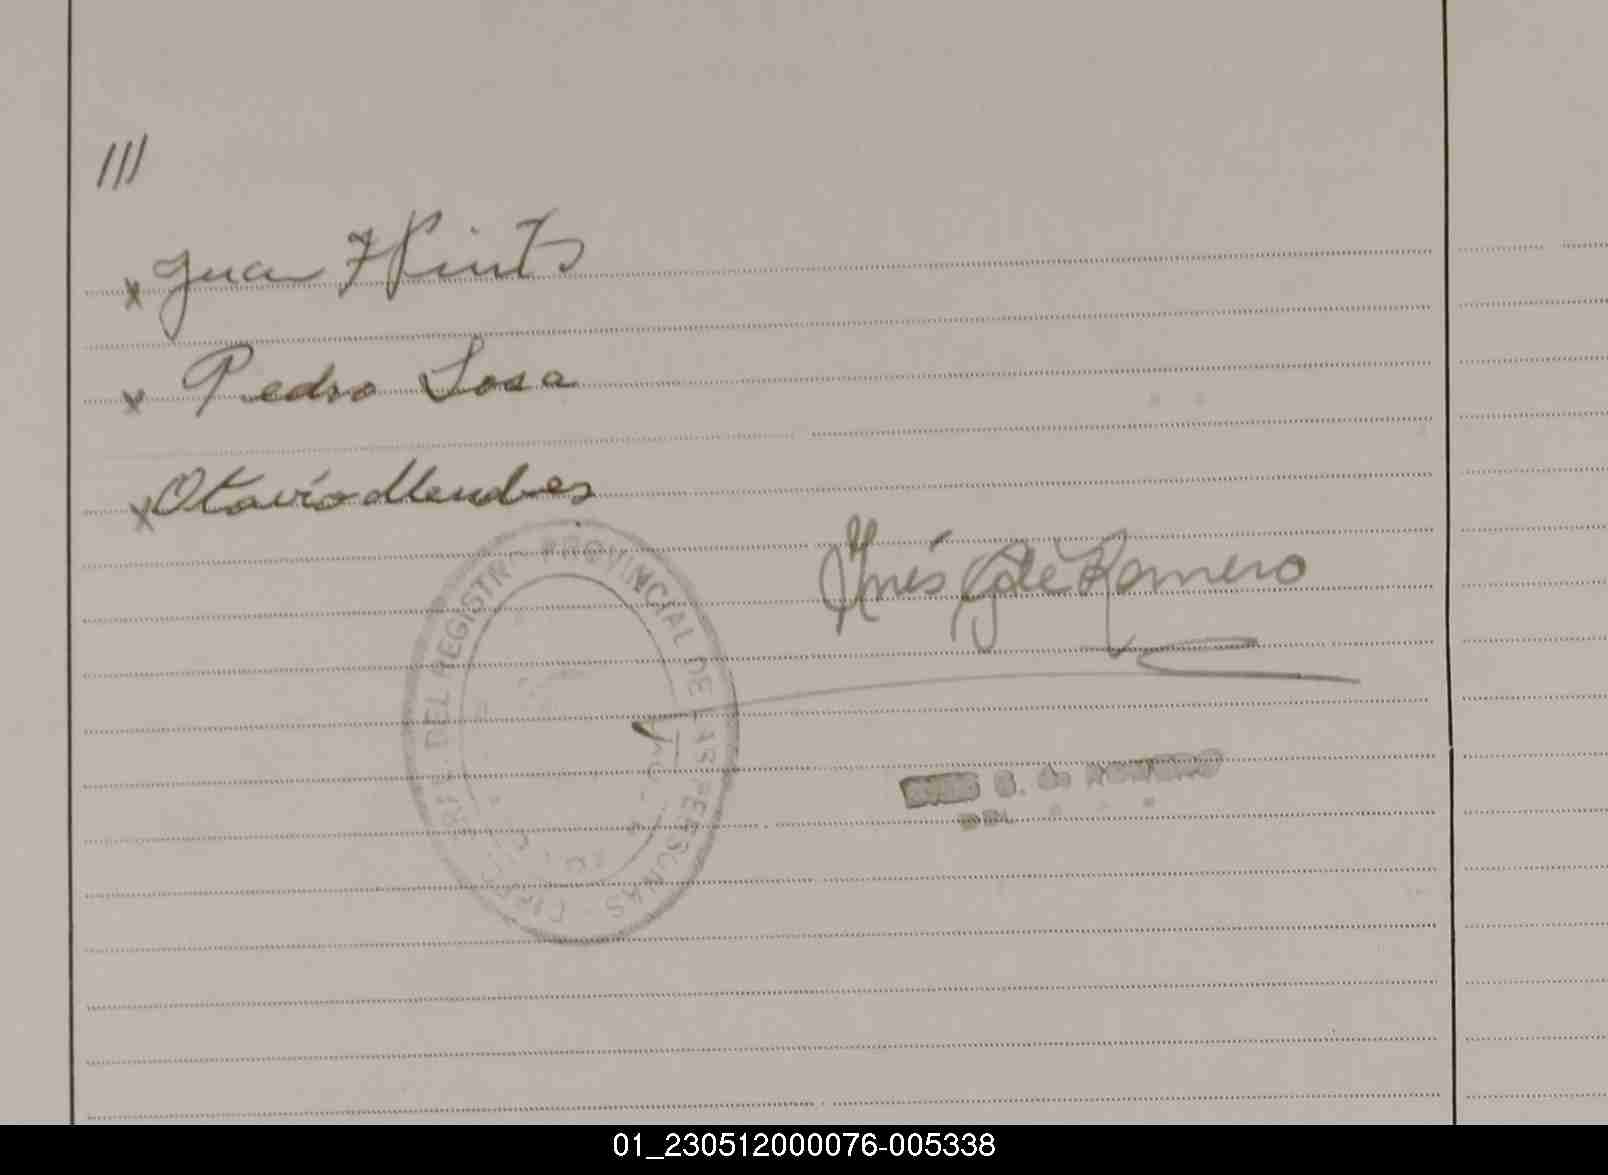 ///
x Juan F Pinto
x Pedro Sosa
x Otavio Mendes
Inés G de Romero
DEL REGISTRO PROVINCIAL DE LAS PERSONAS
INES G. de ROMERO
DEL
01_230512000076-005338